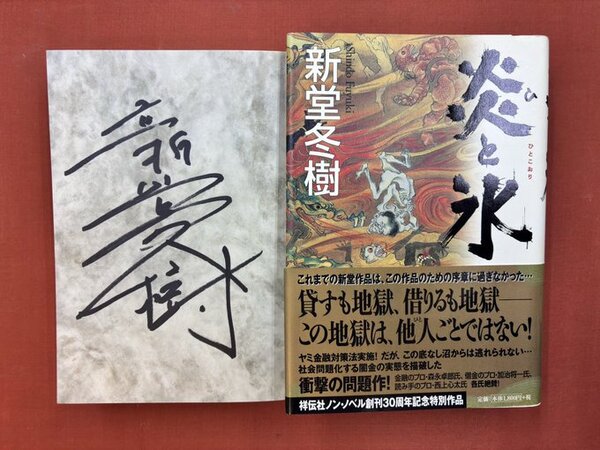 新堂冬樹
炎と氷
ひ
ひとこおり
新堂冬樹
Shindo Fuyuki
これまでの新堂作品は、この作品のための序章に過ぎなかった…
貸すも地獄、借りるも地獄──
この地獄は、他人ごとではない!
ヤミ金融対策法実施!だが、この底なし沼からは逃れられない…
社会問題化する闇金の実態を描破した
衝撃の問題作!
金融のプロ・森永卓郎氏、借金のプロ・加治将一氏、
読み手のプロ・西上心太氏 各氏絶賛!
祥伝社ノン・ノベル創刊30周年記念特別作品
定価 本体1,800円+税